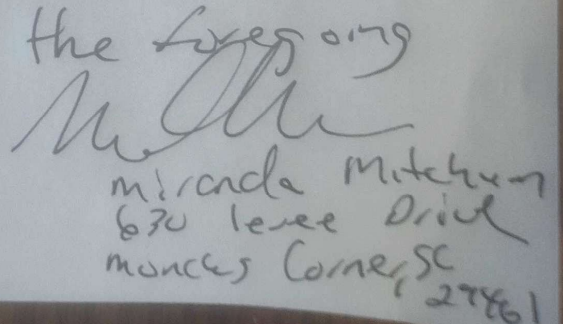 the foregoing
miranda Mitchum
630 levee Drive
moncks Corner, SC
29461